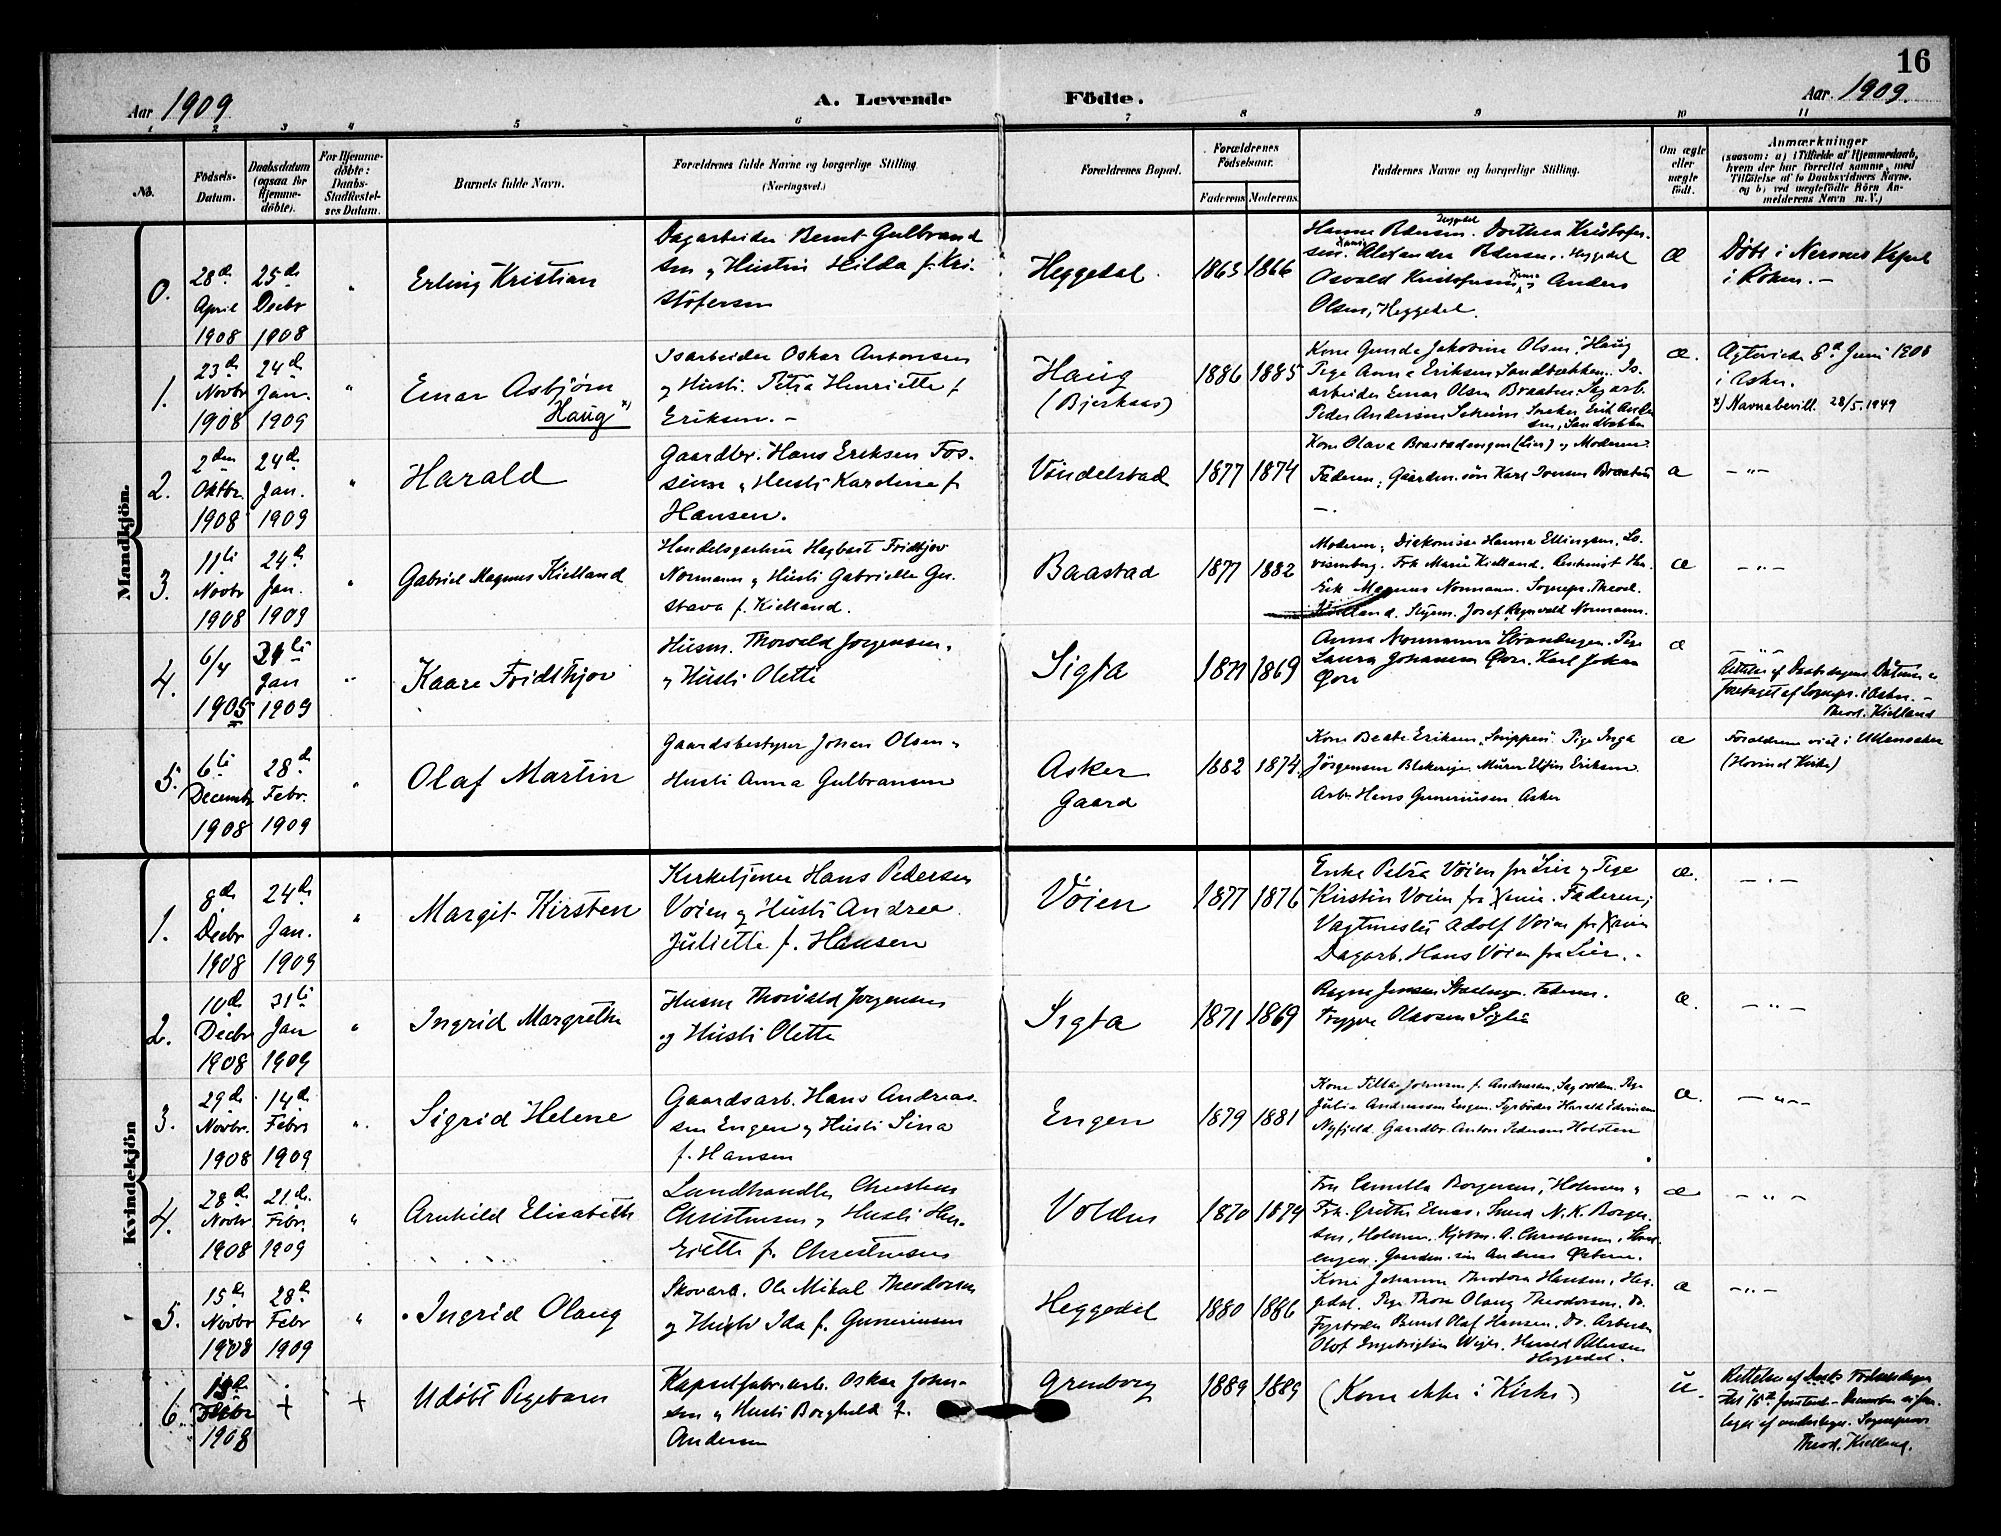 16
Aar 1909
A. Levende Födte.
Aar 1909.
1 2 3 4 5 6 7 8 9 10 11
No.
Födsels-Datum.
Daabsdatum (ogsaa for Hjemme-döbte).
For Hjemme-döbte: Daabs-Stadfestel-ses Datum.
Barnets fulde Navn.
Forældrenes fulde Navne og borgerlige Stilling.
(Næringsvei.)
Forældrenes Bopæl.
Forældrenes Födselsaar.
Faderens Moderens
Faddernes Navne og borgerlige Stilling.
Om ægte eller uægte födt.
Anmærkninger
(saasom: a) i Tilfælde af Hjemmedaab,
hvem der har forrettet samme, med
Tilföielse af to Daabsvidners Navne.
og b) ved uægtefödte Börn An-
melderens Navn m.V.)
Mandkjön.
0. 28de April 1908
25de Decbr 1908
"
Erling Kristian
Dagarbeider Bernt Gulbrand
sen og Hustru Hilda f. Kri-
stofersen
Heggedal.
1863 1866
Hanna Pedersen Heggedal. Dorthea Kristofer-
sen. Alexander Pedersen. Heggedal
Osvald Kristofersen Anders
Olsen, Heggedal.
æ
Döbt i Nersnes Kapel
i Röken. –
1. 23de Novbr 1908
24de Jan. 1909
"
Einar Asbjørn
Haug x)
Isarbeider Oskar Antonsen
og Hustr. Petra Henriette f.
Eriksen. –
Haug
(Bjerkaas)
1886 1885
Kone Gunda Jakobine Olsen, Haug
Pige Anna Eriksen Sandbakken. Is-
arbeider Einar Olsen Braaten. Sagarb.
Peder Andersen
Sandbakken
æ.
Ægteviede 8de Juni 1908
i Asker.
x) Navnebevill. 28/5. 1949
2. 2den Oktbr. 1908
24de Jan. 1909
"
Harald
Gaardbr. Hans Eriksen Fos-
sum og Hustr. Karoline f.
Hansen.
Vöndelstad
1877 1874
Kone Olava Brastadengen (Lier) og Moderen
Faderen, Gaardm. sön Karl Iversen
–.
æ
– " –
3. 11te Novbr 1908
24de Jan. 1909
"
Gabriel Magnus Kielland
Handelsgartner Hagbart Fridtjov
Normann og Hustr. Gabrielle Gu-
stava f. Kielland.
Baastad
1877 1882
Moderen, Diakonisse Hanna Ellingsen, Lo-
visenberg. Frk Marie Kielland.
Magnus Normann. Sogнepr. Theod.
Kielland. Josef Ragnvald Normann.
æ
– " –
4. 6/4 1905
31te Jan 1909
"
Kaare Fridthjov
Husm. Thorvald Jorgensen
og Hustr Olette
Sigta
1871 1869
Anna Normann Pige
Laura Johansen Karl Johan
æ
– " –
Rettelse af Daabsdagens Datum er
foretaget af Sognepr. i Asker. –
Theod. Kielland
5. 6te Decembr 1908
28de Febr. 1909
"
Olaf Martin
Gaardsbestyrer Johan Olsen og
Hustr Anna Gulbransen
Asker
Gaard
1882 1874.
Kone Beate Eriksen, Pige Inga
Jörgensen Murer Eriksen
Arb. Hans Guneriussen Asker
æ
Forældrene viet i Ullensaker
(Hovind Kirke)
Kvindekjön
1. 8de Decbr 1908
24de Jan. 1909
"
Margit Kirsten
Kirketjener Hans Pedersen
Voien og Hustr Andrea
Juliette f. Hansen
Vöien
1877 1876
Enke Petra Vöien fra Lier og Pige
Kirstin Voien fra Faderen,
Vagtmester Adolf Voien fra
Dagarb. Hans Vöien fra Lier. –
æ.
– . –
2. 10de Decbr 1908
31te Jan 1909
"
Ingrid Margrethe
Husm Thorvald Jorgensen
og Hustr Olette
Sigta
1871 1869
Ragna Jensen Faderen.
Trygve Olavsen Sigta
æ.
– " –
3. 29de Novbr. 1908
14de Febr 1909
".
Sigrid Helene
Gaardsarb. Hans Andreas-
sen Engen og Hustr Lina
f. Hansen
Engen
1879 1881
Kone Johnsen f. Andreassen, Pige
Julie Andreassen Engen. Fyrböder Harald
Gaardbr. Anton Pedersen Holsten
æ.
– " –
4. 28de Novbr. 1908
21de. Febr. 1909
"
Arnhild Elisabeth
Landhandler Christian
Christensen og Hustr Hen-
riette f. Christensen
Volden
1870 1879
Fru Camilla Borgersen, Holmen og
Frk. Grethe N. K. Borger-
sen, Holmen. A. Christensen,
Gaardm. sön Andreas
æ
– " –
5. 15de Novbr 1908
28de Febr 1909
"
Ingrid Olaug
Skovarb. Ole Mikal Theodorsen
og Hustr Ida f. Guneriussen
Heggedal
1880 1886
Kone Johanne Theodora Hansen, Heg-
gedal. Pige Thora Olaug Theodorsen. Do.
Fyrböder Bernt Olaf Hansen, Do. Arbeider
Olaf Harald Pettersen
Heggedal.
æ
– " –
6. 1908
+
+
Udöbt Pigebarn
Kapselfabrikarb. Oskar Johan-
sen og Hustr Borghild f.
Andersen
Grenborg
1889 1889
(Kom ikke i Kirke)
u.
Rettelse af Fodselsdagen
Sogneprest
Theod. Kielland.